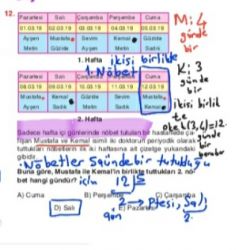 12.
Pazartesi Salı Çarşamba Perşembe Cuma
01.03.19 02.03.19 03.03.19 04.03.19 05.03.19
Ayşen Mustafa Sevim Kemal Gözde
Metin Gözde Ayşen Metin Sadık
1. Hafta
ikisi birlikte
1. Nöbet
M: 4
günde
bir
K: 3
günde
bir
Pazartesi Salı Çarşamba Perşembe Cuma
08.03.19 09.03.19 10.03.19 11.03.19 12.03.19
Mustafa Kemal Gözde Metin Mustafa
Ayşen Sadık Sevim Sadık Kemal
2. Hafta
ikisi birlik
te
okek(3,4)=12
günde
bir
beraber
Sadece hafta içi günlerinde nöbet tutulan bir hastanede ça-
lışan Mustafa ve Kemal isimli iki doktorun periyodik olarak
tuttukları nöbetlerin ilk iki haftasına ait çizelge yukarıdaki
gibidir.
Nöbetler 5 günde bir tutulduğu
için
Buna göre, Mustafa ile Kemal'in birlikte tuttukları 2. nö-
bet hangi gündür?
12 5
2
A) Cuma B) Perşembe C) Çarşamba
D) Salı E) Pazartesi
gün
Ptesi, Salı